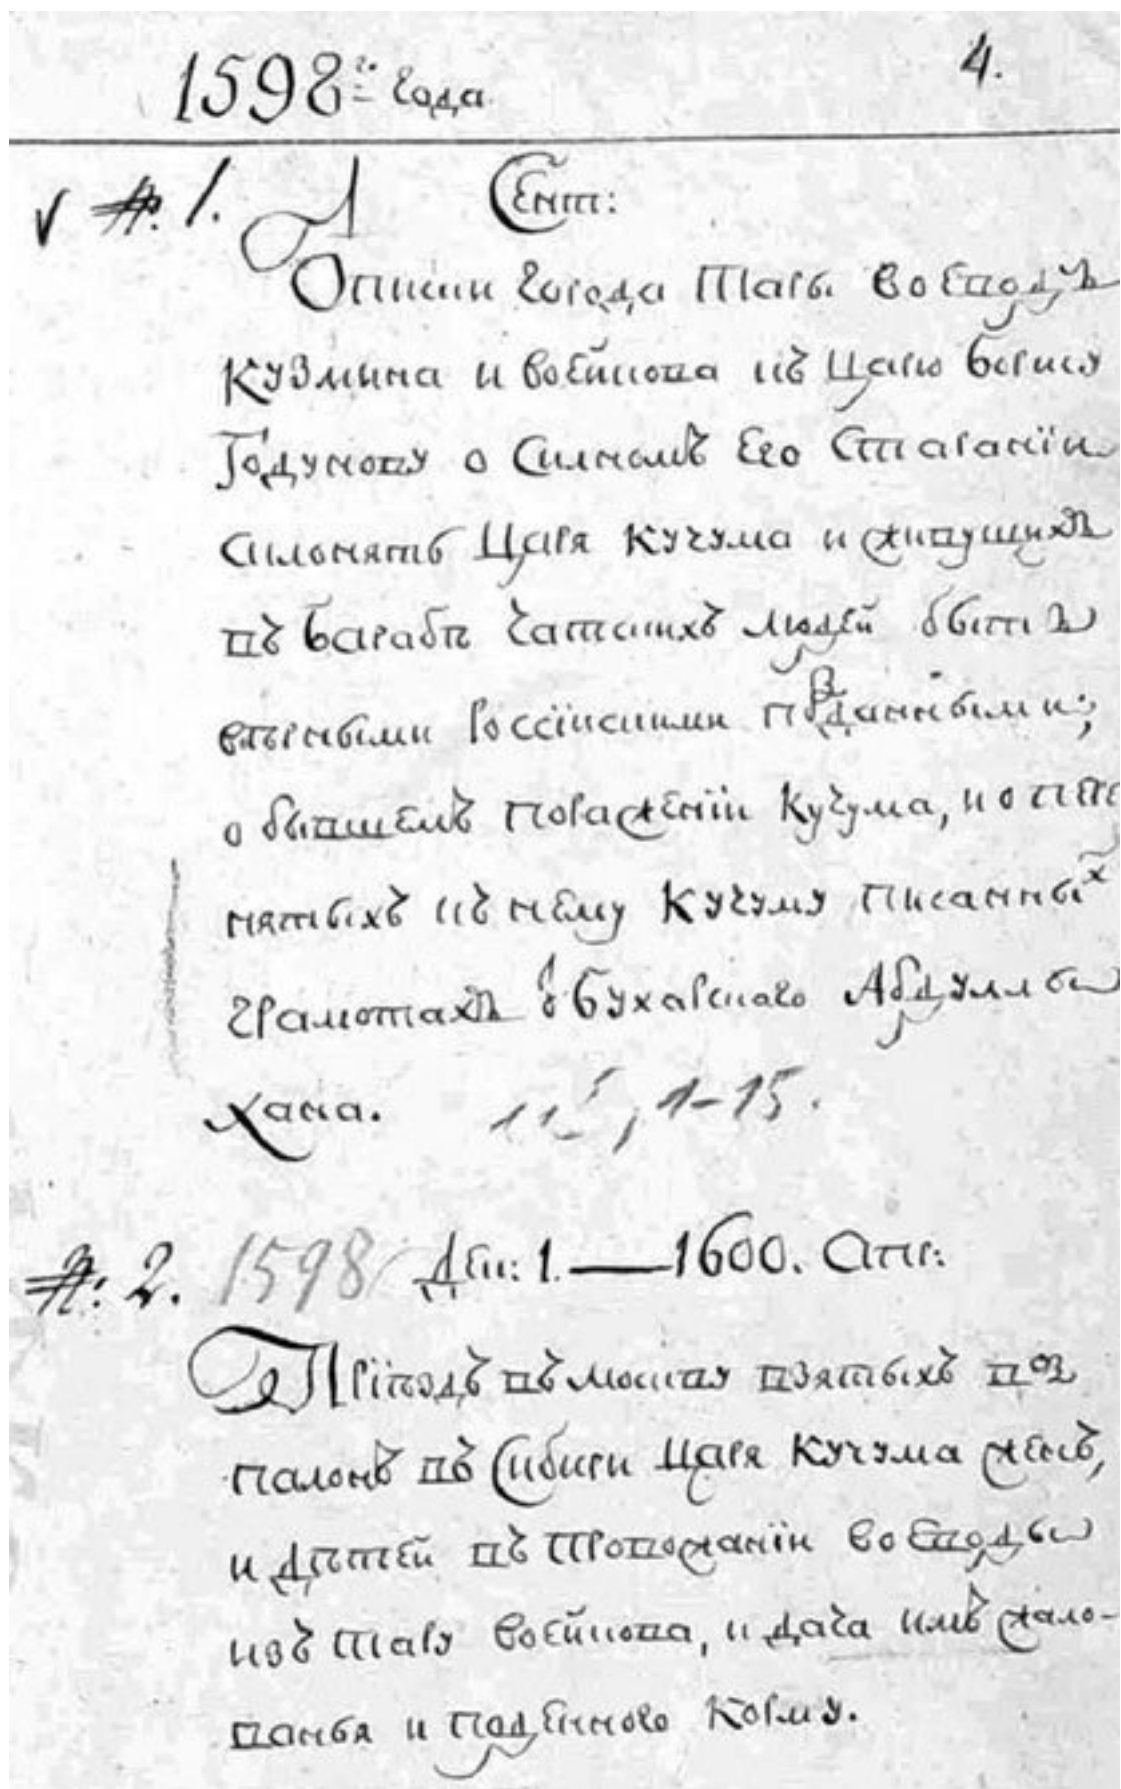 1598го года
4.
№. 1.
Сент:
Отписки города Тары воеводъ
Кузмина и воейкова къ Царю Борису
Годунову о Силномъ Его Старанїи
Склонять Царя Кучума и живущихъ
въ Барабѣ Чатскихъ людей быть
вѣрными Россїискими подданными;
о бывшемъ пораженїи Кучума, и о пере
нятыхъ къ нему Кучуму писанныхъ
грамотахъ от Бухарского Абдуллы
хана.
115, 1-15.
№: 2. 1598 Дек: 1. — 1600. Апр:
Прїѣздъ въ москву взятыхъ въ
полонъ въ Сибири Царя Кучума женъ,
и дѣтей въ провожанїи воеводы
изъ тары воейкова, и дача имъ жало-
ванья и поденного корму.